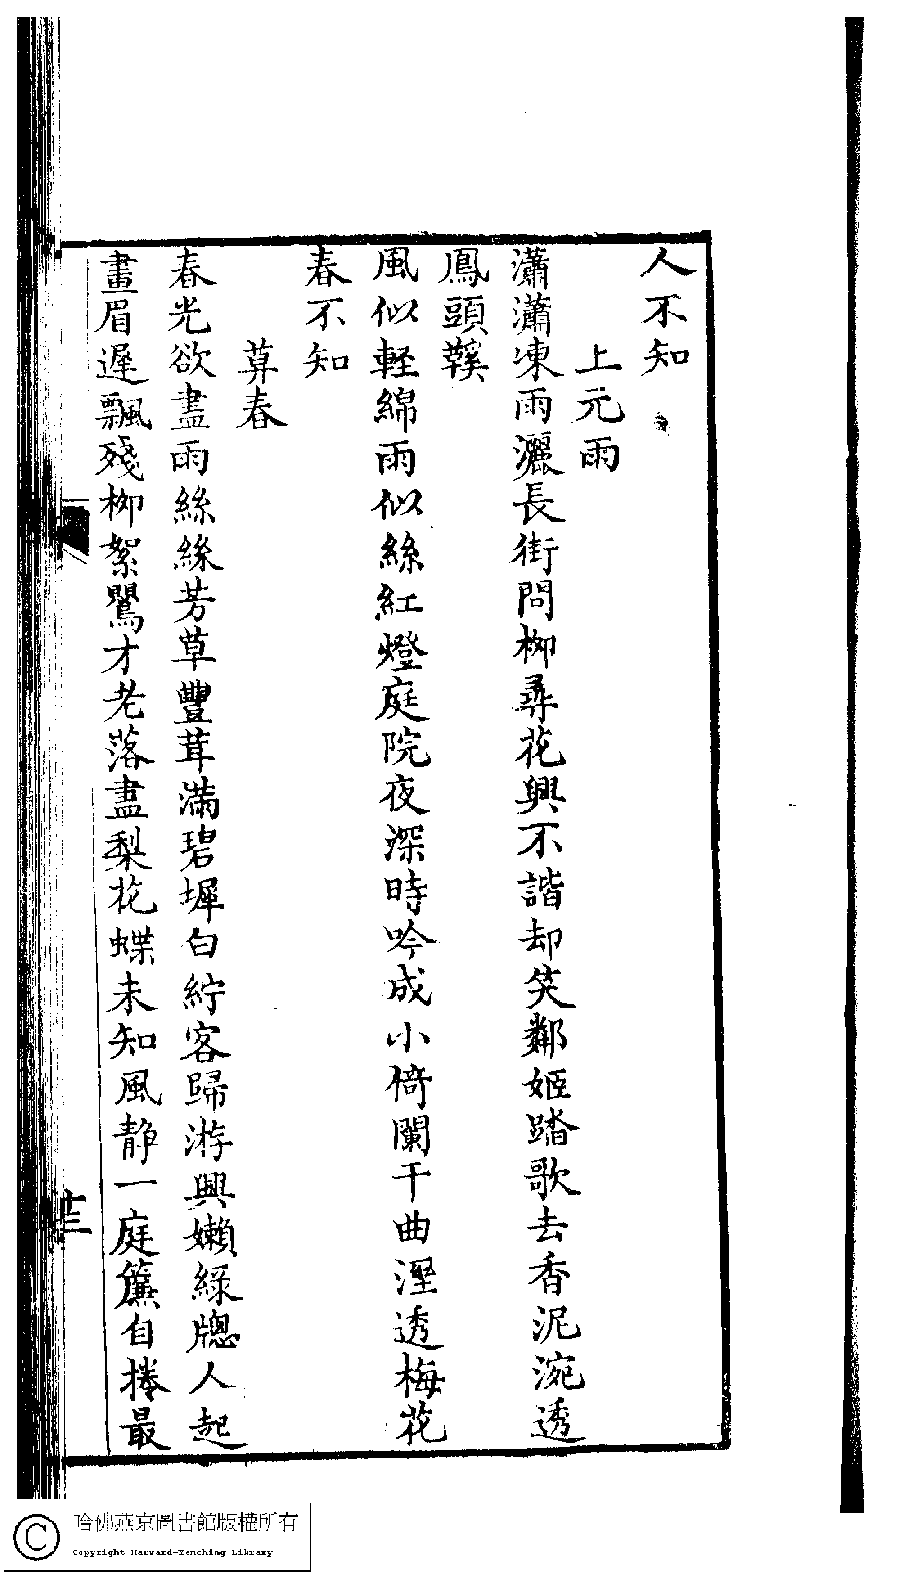 人不知
上元雨
瀟瀟凍雨灑長街問柳尋花興不諧却笑鄰姬踏歌去香泥涴透
鳳頭鞵
風似軽綿雨似絲紅燈庭院夜深時吟成小倚闌干曲溼透梅花
春不知
算春
春光欲盡雨絲絲芳草豐茸滿碧墀白紵客歸游興嬾綠牎人起
畫眉遲飄殘柳絮鶯才老落盡梨花蝶未知風静一庭簾自捲最
廿三
哈佛燕京圖書館版權所有
Copyright Harvard-Yenching Library